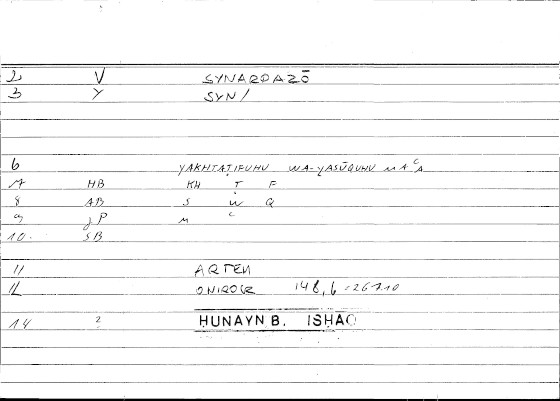 2 V SYNARPAZŌ
3 Y SYN/
6 YAKHTAṬIFUHU WA-YASŪQUHU MAʿA
7 HB KH Ṭ F
8 AB S W Q
9 JP M ʿ
10. SB
11 ARTEM
12 ONIROCR 148,6 = 267.10
14 ? HUNAYN B. ISHAQ